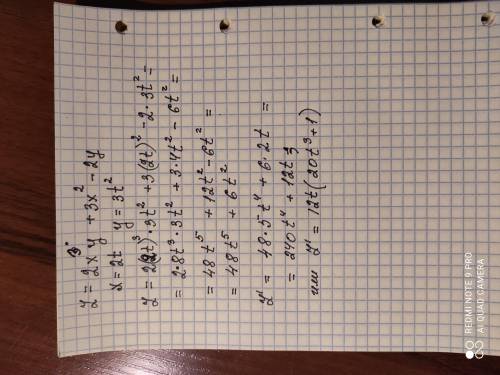 y = 2x³y + 3x² − 2y
x = 2t y = 3t²
y = 2(2t)³ · 3t² + 3(2t)² − 2 · 3t² =
= 2 · 8t³ · 3t² + 3 · 4t² − 6t² =
= 48t⁵ + 12t² − 6t² =
= 48t⁵ + 6t²
y' = 48 · 5t⁴ + 6 · 2t =
= 240t⁴ + 12t
или y' = 12t(20t³ + 1)
REDMI NOTE 9 PRO
AI QUAD CAMERA